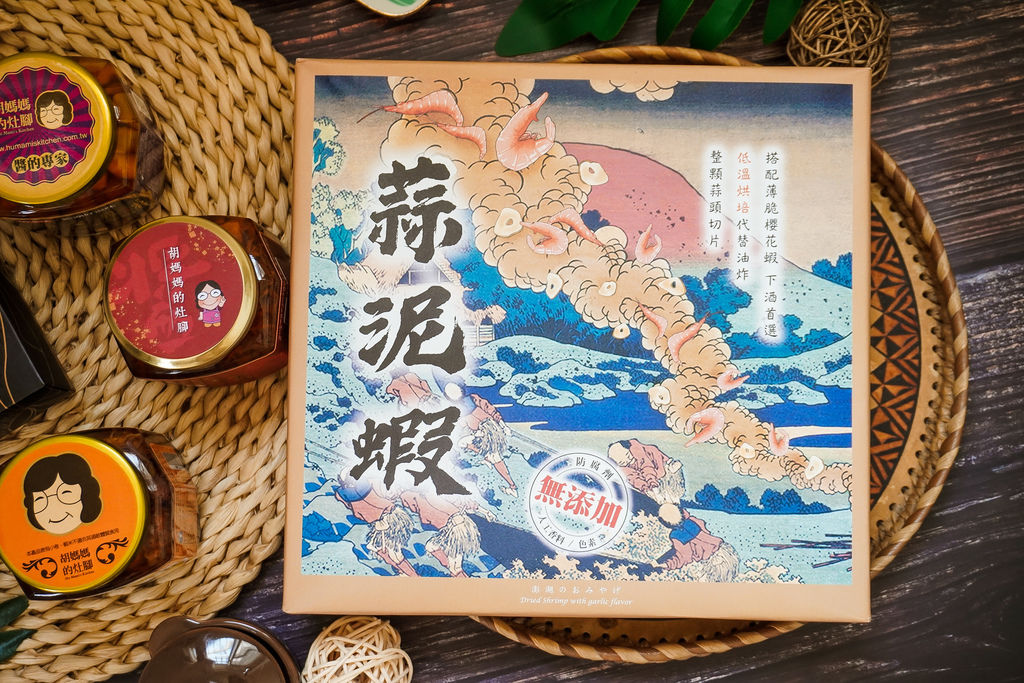 蒜泥蝦
搭配薄脆櫻花蝦 下酒首選
低溫烘培代替油炸
整顆蒜頭切片
防腐劑
無添加
人工香料
色素
澎湖のおみやげ
Dried Shrimp with garlic flavor
胡媽媽
的灶腳
www.humamiskitchen.com.tw
醬的專家
胡媽媽的灶腳
胡媽媽
的灶腳